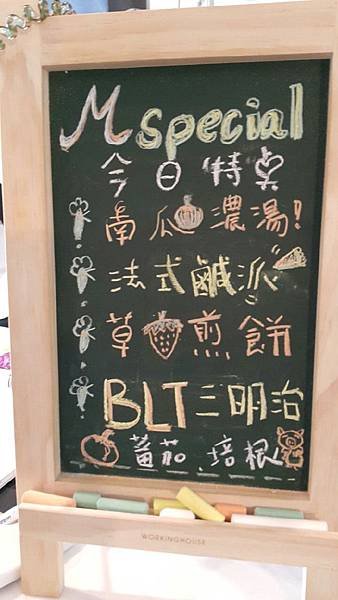 M special
今日特点
南瓜濃湯!
法式鹹派
草莓煎餅
BLT三明治
蕃茄.培根
WORKINGHOUSE